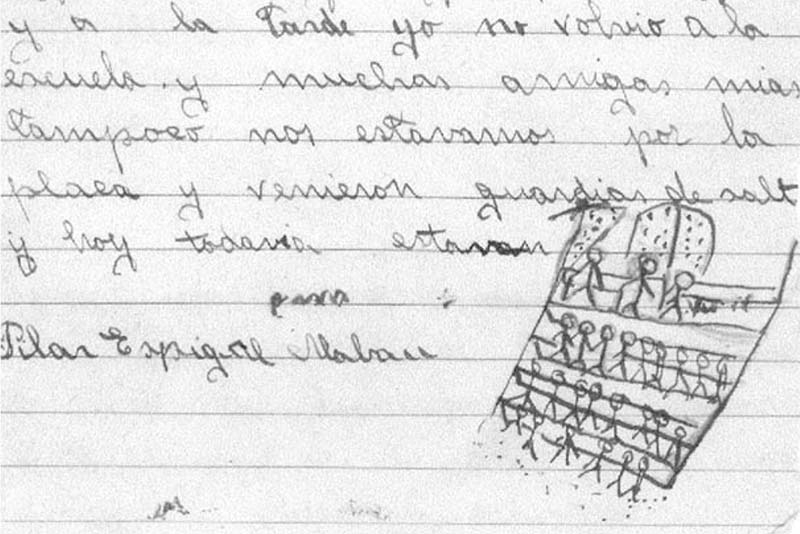 y a la tarde yo no volvio a la
escuela y muchas amigas mias
tampoco nos estavamos por la
plaea y venieron guardias de salt
y hoy todavia estavan
Pilar Espigol